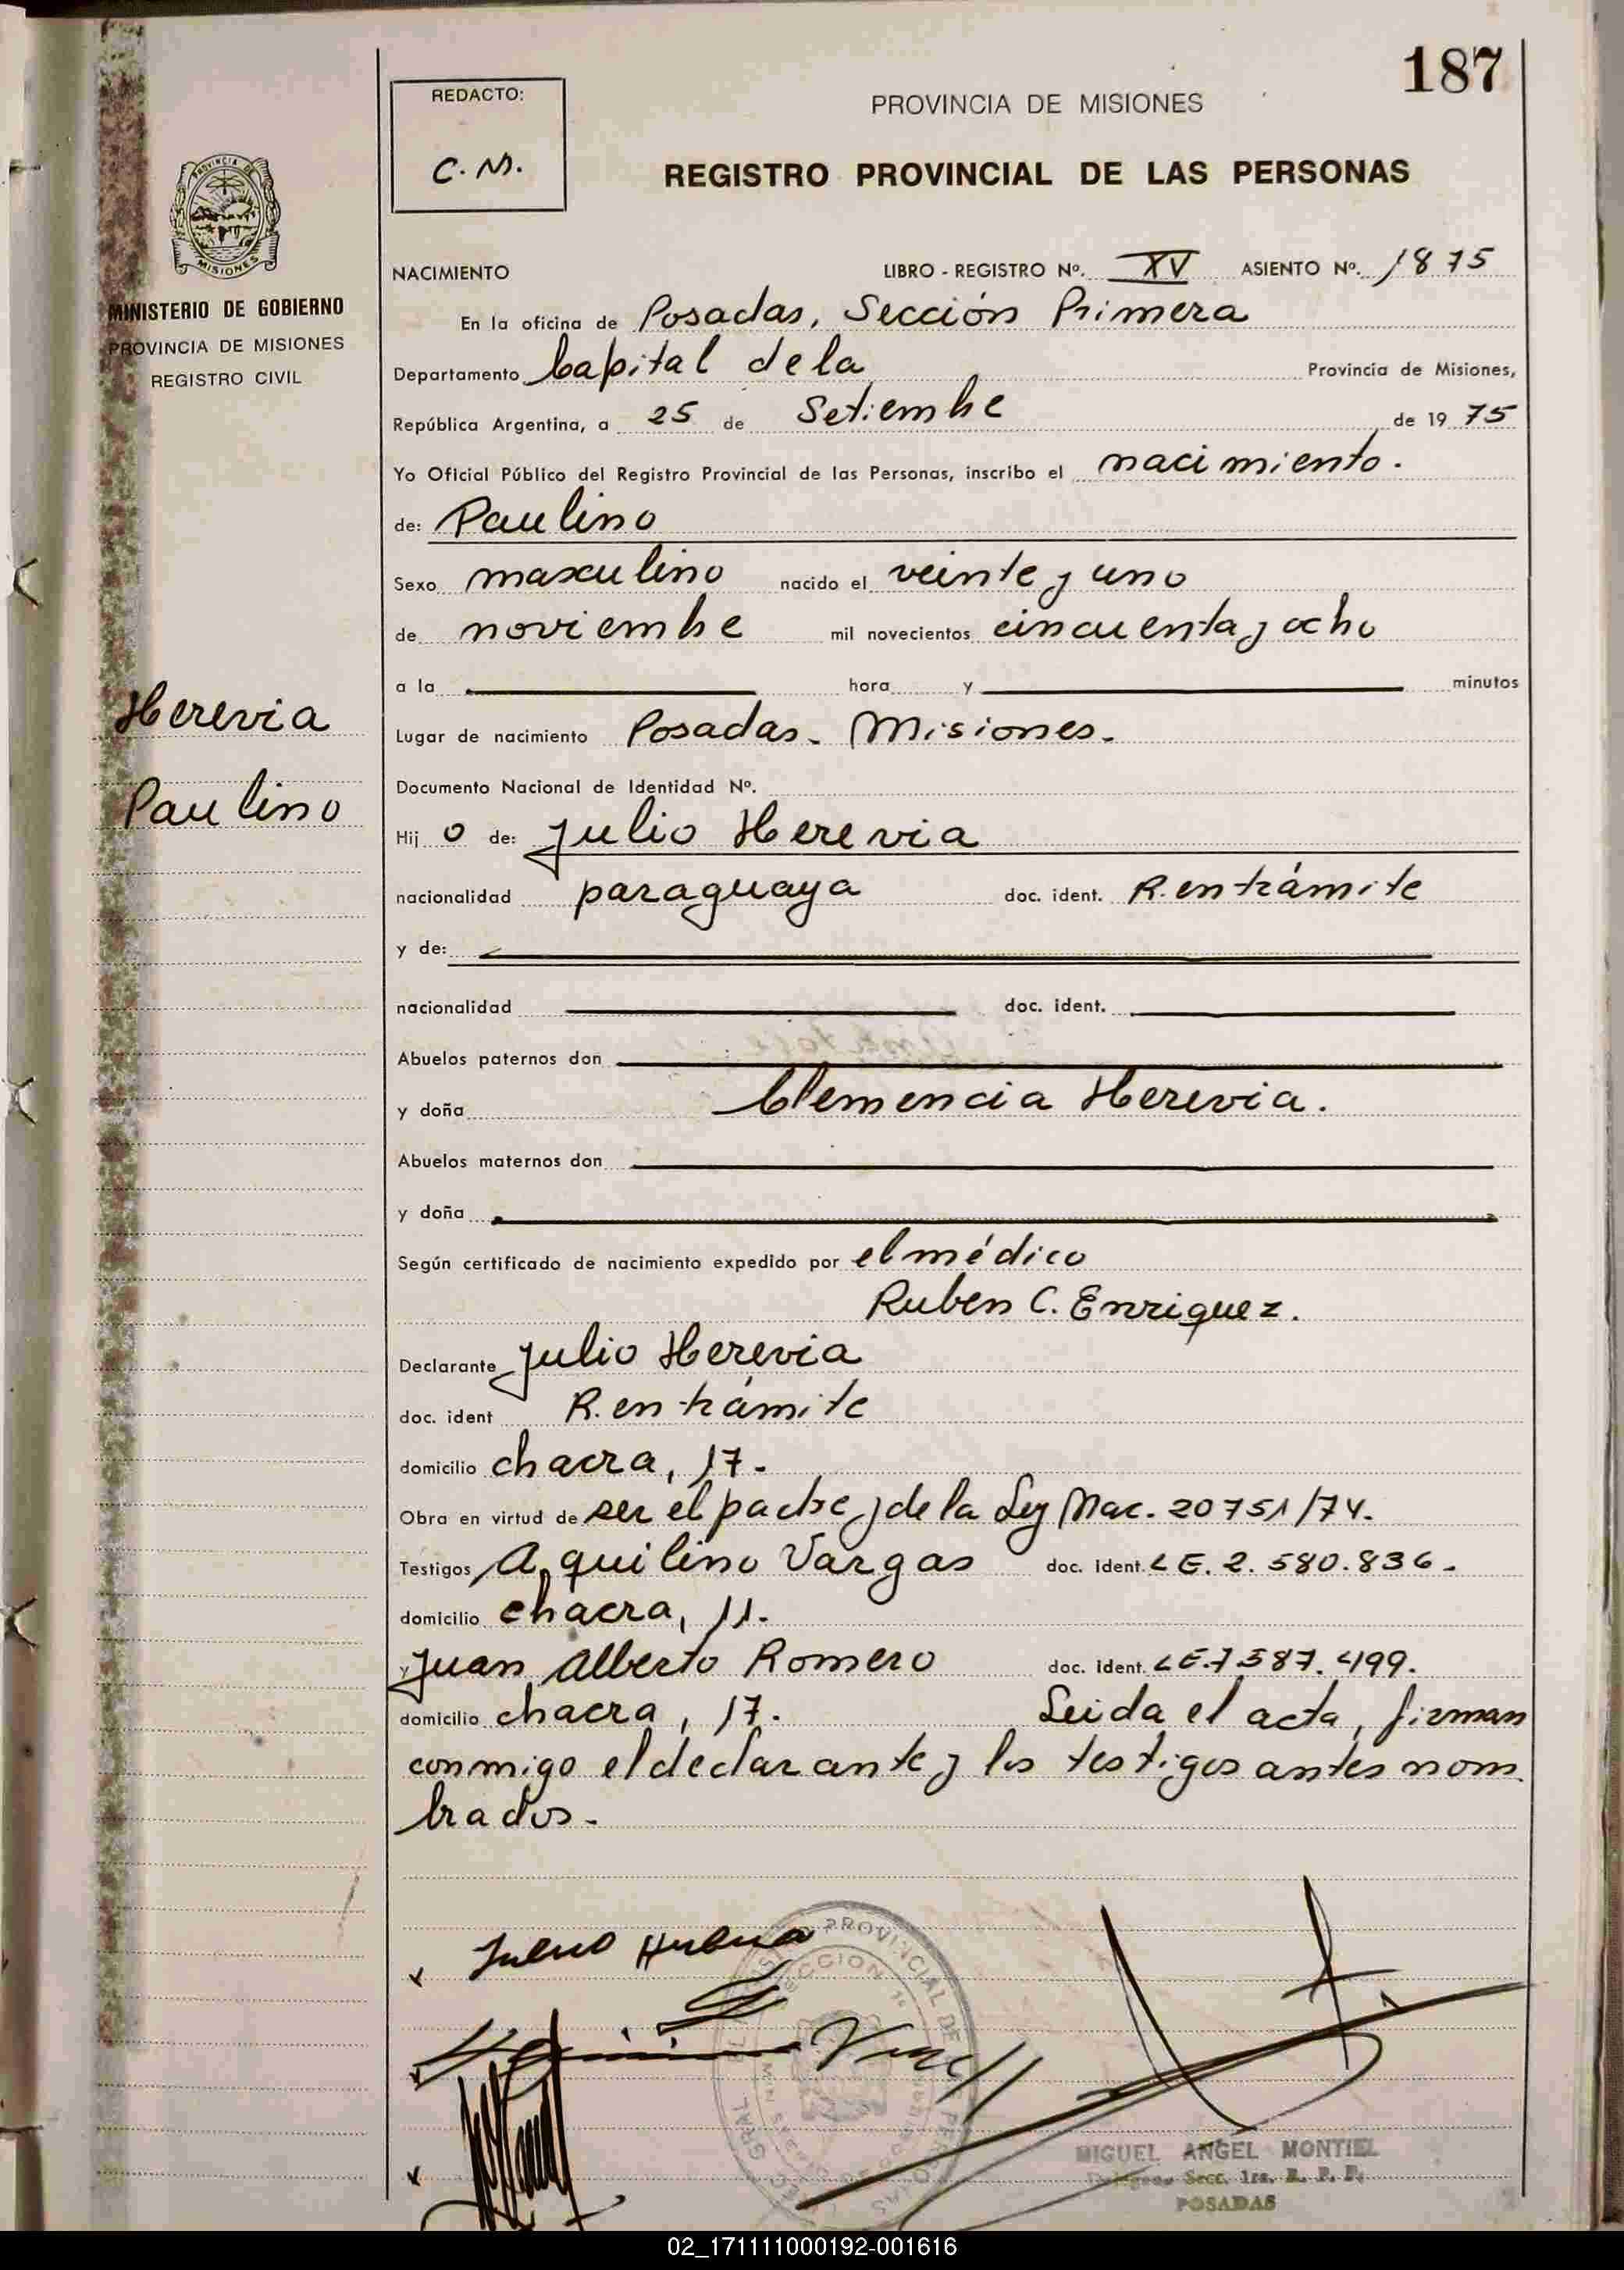 187
REDACTO:
C. M.
PROVINCIA DE MISIONES
REGISTRO PROVINCIAL DE LAS PERSONAS
PROVINCIA DE
MISIONES
MINISTERIO DE GOBIERNO
PROVINCIA DE MISIONES
REGISTRO CIVIL
NACIMIENTO LIBRO - REGISTRO Nº. XV ASIENTO Nº. 1875
En la oficina de Posadas, Sección Primera
Departamento Capital de la Provincia de Misiones,
República Argentina, a 25 de Setiembre de 19 75
Yo Oficial Público del Registro Provincial de las Personas, inscribo el nacimiento.
de: Paulino
Sexo masculino nacido el veinte y uno
de noviembre mil novecientos cincuenta y ocho
a la hora y minutos
Herevia
Lugar de nacimiento Posadas - Misiones.
Documento Nacional de Identidad Nº.
Paulino
Hij o de: Julio Herevia
nacionalidad paraguaya doc. ident. R. en trámite
y de:
nacionalidad doc. ident.
Abuelos paternos don
y doña Clemencia Herevia.
Abuelos maternos don
y doña
Según certificado de nacimiento expedido por el médico
Ruben C. Enriquez.
Declarante Julio Herevia
doc. ident R. en trámite
domicilio chacra, 17.
Obra en virtud de ser el padre y de la Ley Nac. 20751/74.
Testigos Aquilino Vargas doc. ident. LE. 2.580.836.
domicilio chacra, 11.
y Juan Alberto Romero doc. ident. LE. 7.587.499.
domicilio chacra, 17. Leida el acta, firman
conmigo el declarante y los testigos antes nom
brados.
MIGUEL ANGEL MONTIEL
Secc. 1ra. R. P. P.
POSADAS
02_171111000192-001616